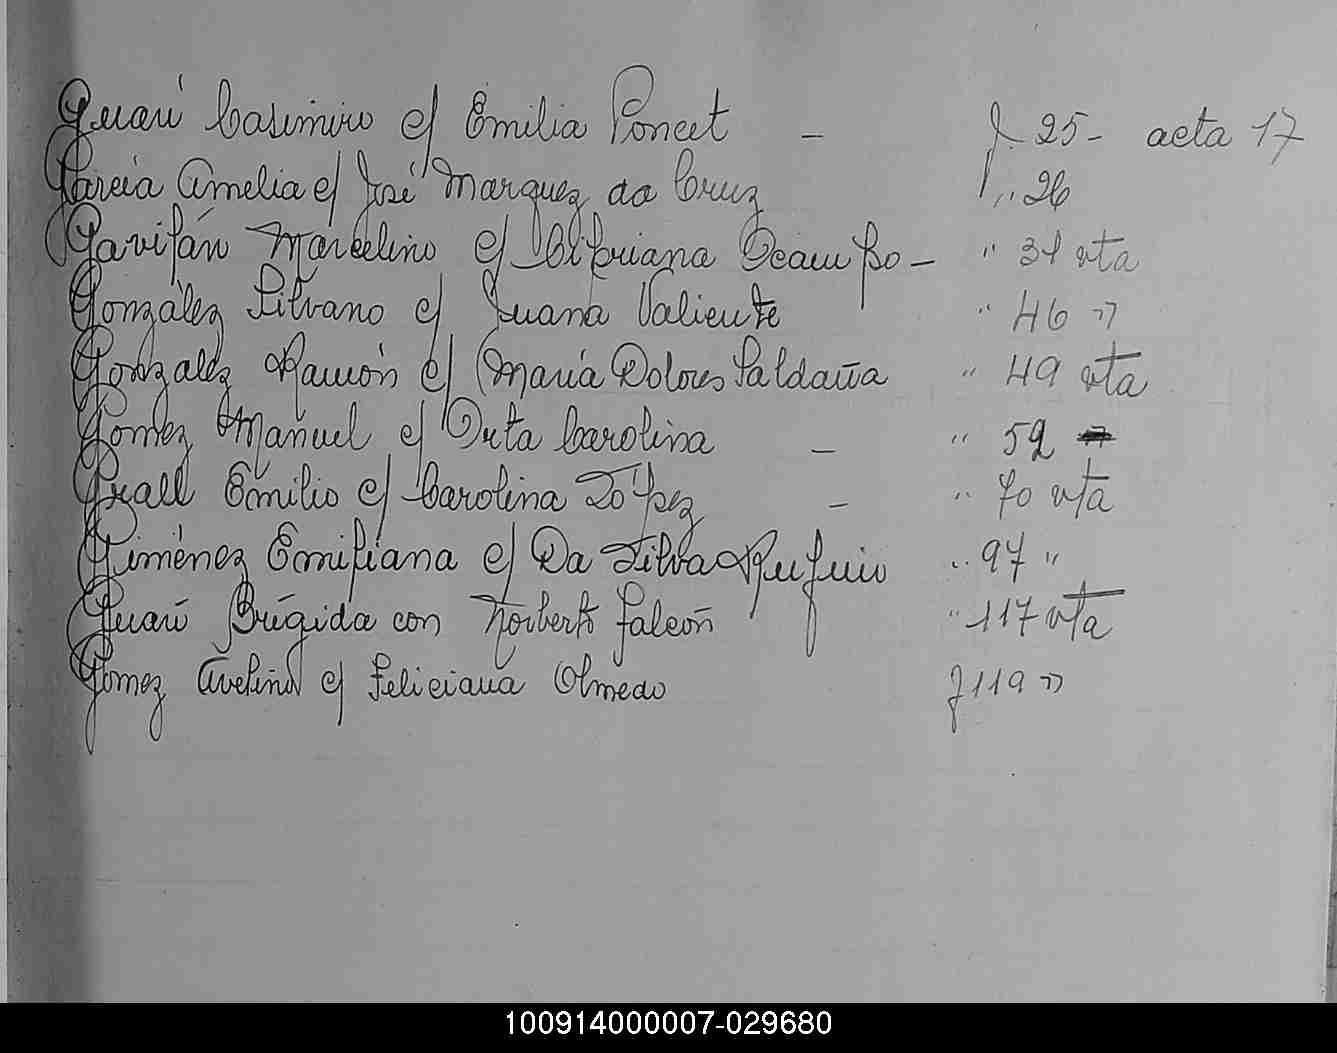 Guarú Casimiro c/ Emilia Poncet — f 25 - acta 17
García Amelia c/ José Marquez da Cruz " 26
Gavilán Marcelino c/ Cipriana Ocampo — " 31 vta
González Silvano c/ Juana Valiente " 46 "
Gonzalez Ramón c/ María Dolores Saldaña " 49 vta
Gomez Manuel c/ Orta Carolina — " 52
Grall Emilio c/ Carolina López — " 70 vta
Giménez Emiliana c/ Da Silva " 97 "
Guarú Brígida con Norberto Falcón " 117 vta
Gomez Avelino c/ Feliciana Olmedo f 119 "
100914000007-029680